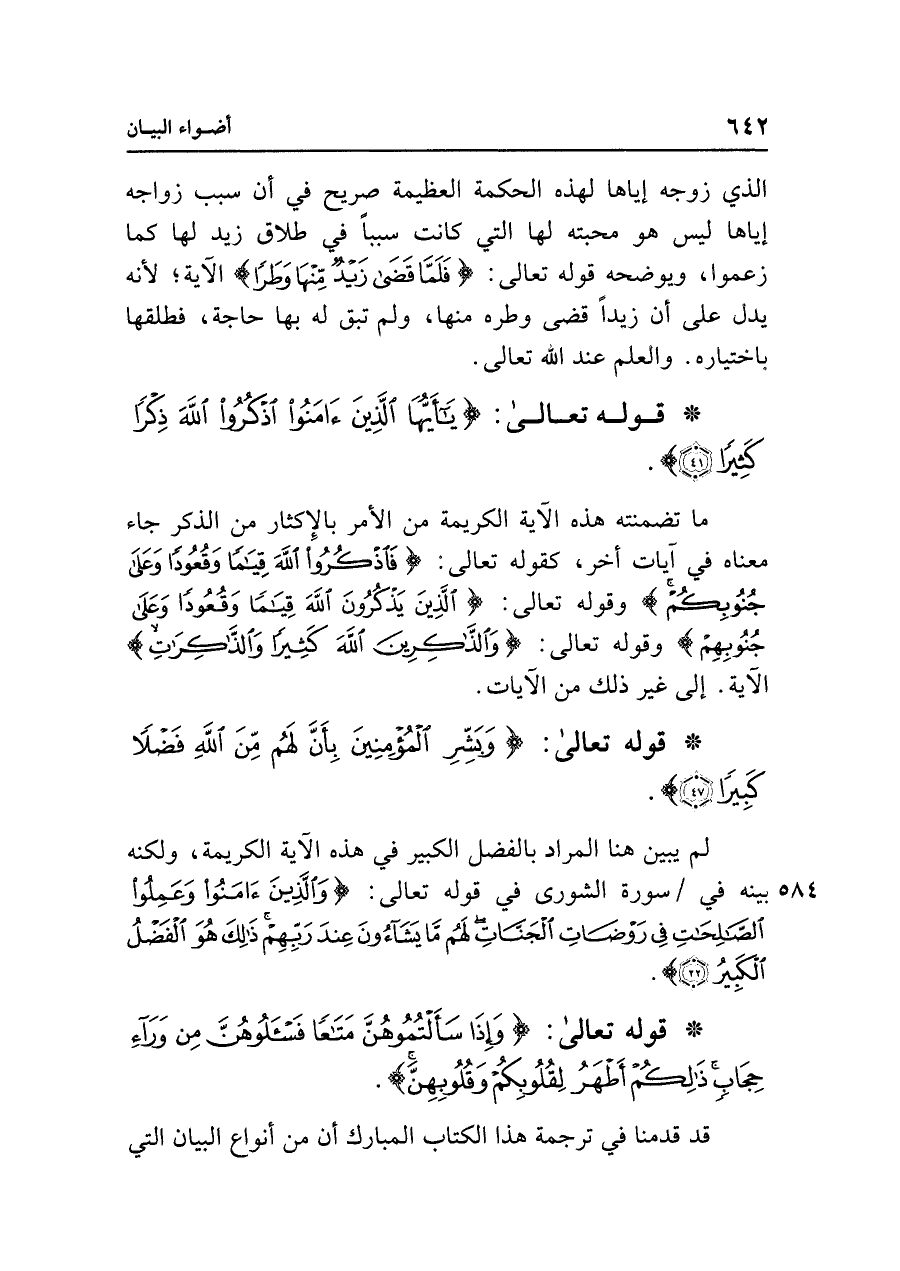 ٦٤٢ أضـواء البيـان
الذي زوجه إياها لهذه الحكمة العظيمة صريح في أن سبب زواجه
إياها ليس هو محبته لها التي كانت سبباً في طلاق زيد لها كما
زعموا، ويوضحه قوله تعالى: ﴿ فَلَمَّا قَضَىٰ زَيْدٌ مِّنْهَا وَطَرًا﴾ الآية؛ لأنه
يدل على أن زيداً قضى وطره منها، ولم تبق له بها حاجة، فطلقها
باختياره. والعلم عند الله تعالى.
* قـولـه تعـالـىٰ: ﴿ يَٰٓأَيُّهَا ٱلَّذِينَ ءَامَنُوا۟ ٱذْكُرُوا۟ ٱللَّهَ ذِكْرًا
كَثِيرًا ٤١﴾.
ما تضمنته هذه الآية الكريمة من الأمر بالإِكثار من الذكر جاء
معناه في آيات أخر، كقوله تعالى: ﴿ فَٱذْكُرُوا۟ ٱللَّهَ قِيَٰمًا وَقُعُودًا وَعَلَىٰ
جُنُوبِكُمْ ۚ﴾ وقوله تعالى: ﴿ ٱلَّذِينَ يَذْكُرُونَ ٱللَّهَ قِيَٰمًا وَقُعُودًا وَعَلَىٰ
جُنُوبِهِمْ ﴾ وقوله تعالى: ﴿ وَٱلذَّٰكِرِينَ ٱللَّهَ كَثِيرًا وَٱلذَّٰكِرَٰتِ ۙ﴾
الآية. إلى غير ذلك من الآيات.
* قوله تعالىٰ: ﴿ وَبَشِّرِ ٱلْمُؤْمِنِينَ بِأَنَّ لَهُم مِّنَ ٱللَّهِ فَضْلًا
كَبِيرًا ٤٧﴾.
لم يبين هنا المراد بالفضل الكبير في هذه الآية الكريمة، ولكنه
٥٨٤ بينه في / سورة الشورى في قوله تعالى: ﴿ وَٱلَّذِينَ ءَامَنُوا۟ وَعَمِلُوا۟
ٱلصَّٰلِحَٰتِ فِى رَوْضَاتِ ٱلْجَنَّاتِ ۖ لَهُم مَّا يَشَآءُونَ عِندَ رَبِّهِمْ ۚ ذَٰلِكَ هُوَ ٱلْفَضْلُ
ٱلْكَبِيرُ ٢٢﴾.
* قوله تعالىٰ: ﴿ وَإِذَا سَأَلْتُمُوهُنَّ مَتَٰعًا فَسْـَٔلُوهُنَّ مِن وَرَآءِ
حِجَابٍ ۚ ذَٰلِكُمْ أَطْهَرُ لِقُلُوبِكُمْ وَقُلُوبِهِنَّ ۚ﴾.
قد قدمنا في ترجمة هذا الكتاب المبارك أن من أنواع البيان التي